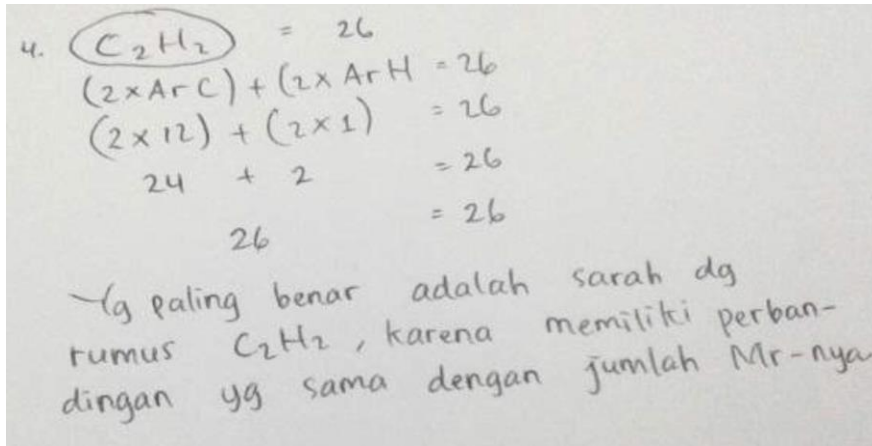 4. C₂H₂ = 26
(2×Ar C) + (2× Ar H = 26
(2 × 12) + (2 × 1) = 26
24 + 2 = 26
26 = 26
Yg paling benar adalah sarah dg
rumus C₂H₂, karena memiliki perban-
dingan yg sama dengan jumlah Mr-nya